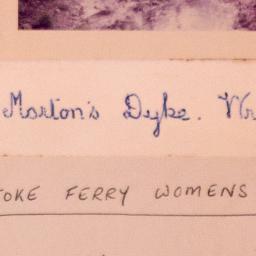 Morton's Dyke. Wr
TOKE FERRY WOMENS